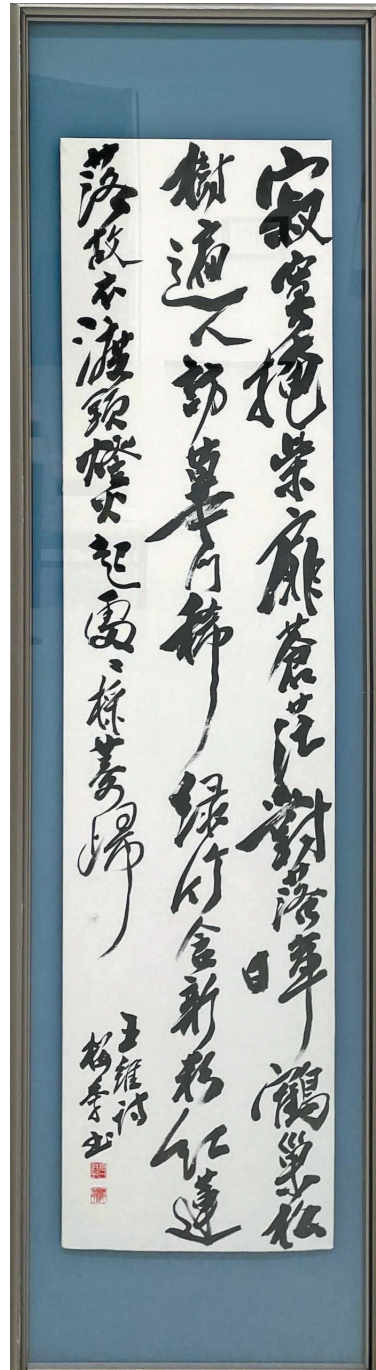 寂寞掩柴扉蒼茫對落暉鶴巢松
樹遍人訪蓽門稀緑竹含新粉紅蓮
落故衣渡頭燈火起處〻採菱歸
王維詩
書